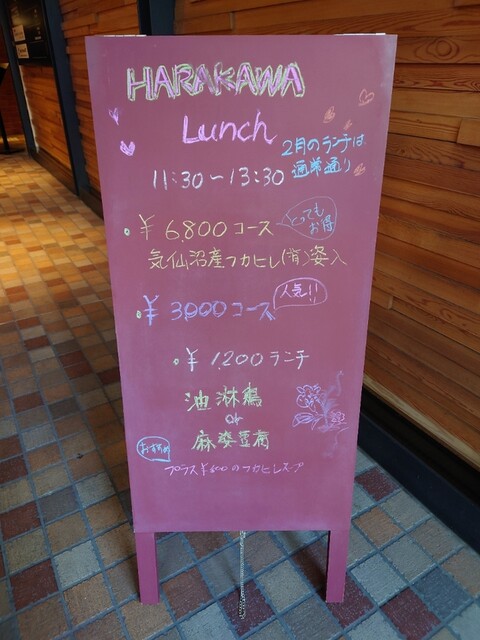 HARAKAWA
Lunch
2月のランチは
通常通り
11:30〜13:30
・¥6,800コース
とっても
お得
気仙沼産フカヒレ(背)姿入
・¥3,000コース
人気!!
・¥1,200ランチ
油淋鶏
or
麻婆豆腐
おすすめ
プラス¥600のフカヒレスープ